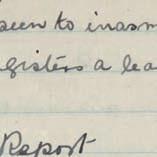 seen to inasm
gisters a lea
Report